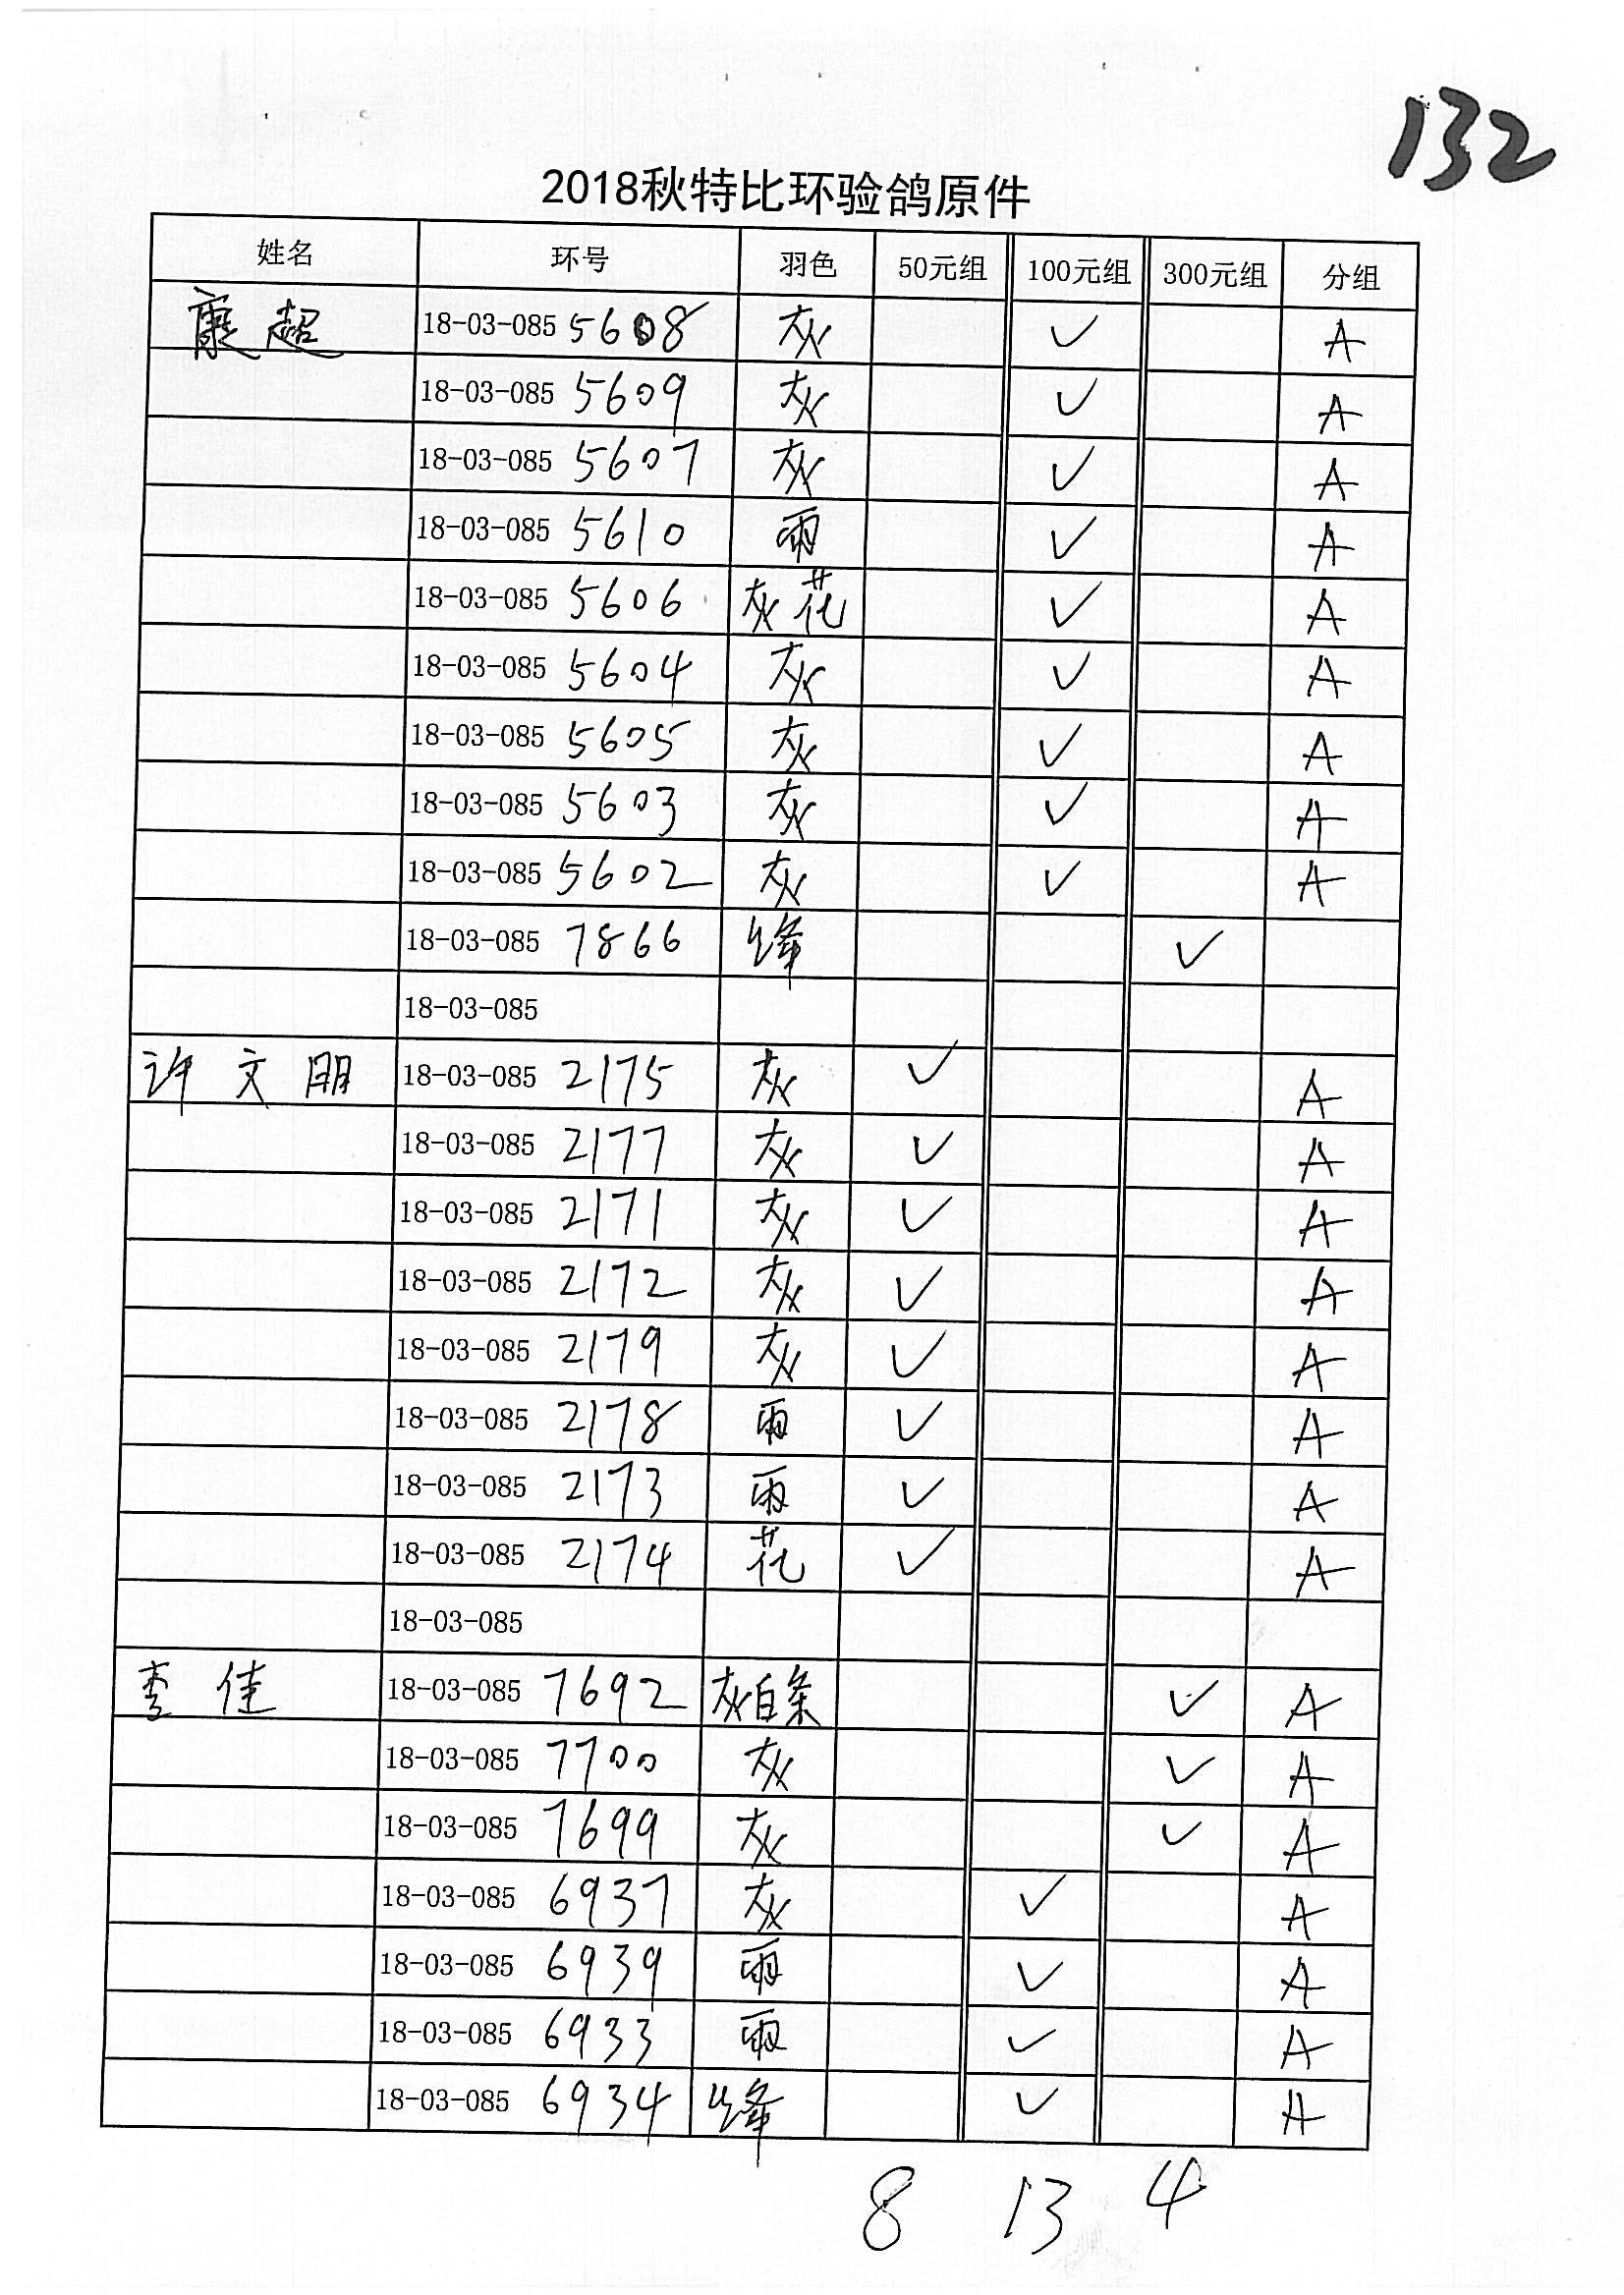 132
2018秋特比环验鸽原件
姓名 环号 羽色 50元组 100元组 300元组 分组
康超 18-03-085 5608 灰 ✓ A
18-03-085 5609 灰 ✓ A
18-03-085 5607 灰 ✓ A
18-03-085 5610 雨 ✓ A
18-03-085 5606 灰花 ✓ A
18-03-085 5604 灰 ✓ A
18-03-085 5605 灰 ✓ A
18-03-085 5603 灰 ✓ A
18-03-085 5602 灰 ✓ A
18-03-085 7866 绛 ✓
18-03-085
许文朋 18-03-085 2175 灰 ✓ A
18-03-085 2177 灰 ✓ A
18-03-085 2171 灰 ✓ A
18-03-085 2172 灰 ✓ A
18-03-085 2179 灰 ✓ A
18-03-085 2178 雨 ✓ A
18-03-085 2173 雨 ✓ A
18-03-085 2174 花 ✓ A
18-03-085
李佳 18-03-085 7692 灰白条 ✓ A
18-03-085 7700 灰 ✓ A
18-03-085 7699 灰 ✓ A
18-03-085 6937 灰 ✓ A
18-03-085 6939 雨 ✓ A
18-03-085 6933 雨 ✓ A
18-03-085 6934 绛 ✓ A
8 13 4